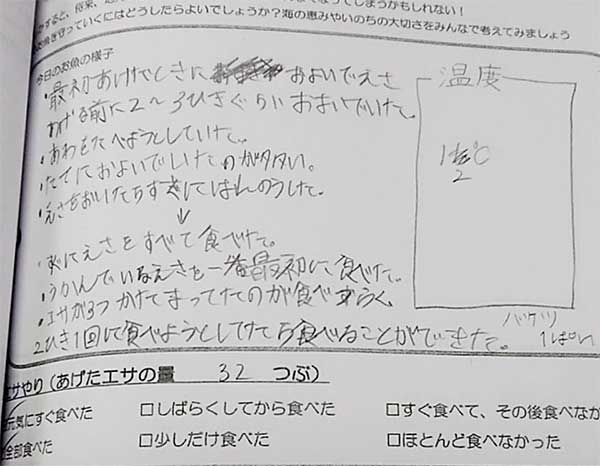 すると、将来、
なってしまうかもしれない！
を守っていくにはどうしたらよいでしょうか？海の恵みやいのちの大切さをみんなで考えてみましょう
今日のお魚の様子
・最初あけたときに およいでえさ
あげる前に2～3ひきぐらいおよいでいた。
・あわもたべようとしていた。
・たてにおよいでいたのが多い。
・えさをおいたらすぐにはんのうした。
↓
・すぐにえさをすべて食べた。
・うかんでいるえさを一番最初に食べた。
・エサが3つ
のが食べ
2ひき1回に食べようとしてたら食べることができた。
温度
℃
2
バケツ
1ぱい
エサやり（あげたエサの量 32 つぶ）
元気にすぐ食べた □しばらくしてから食べた □すぐ食べて、その後食べなか
全部食べた □少しだけ食べた □ほとんど食べなかった